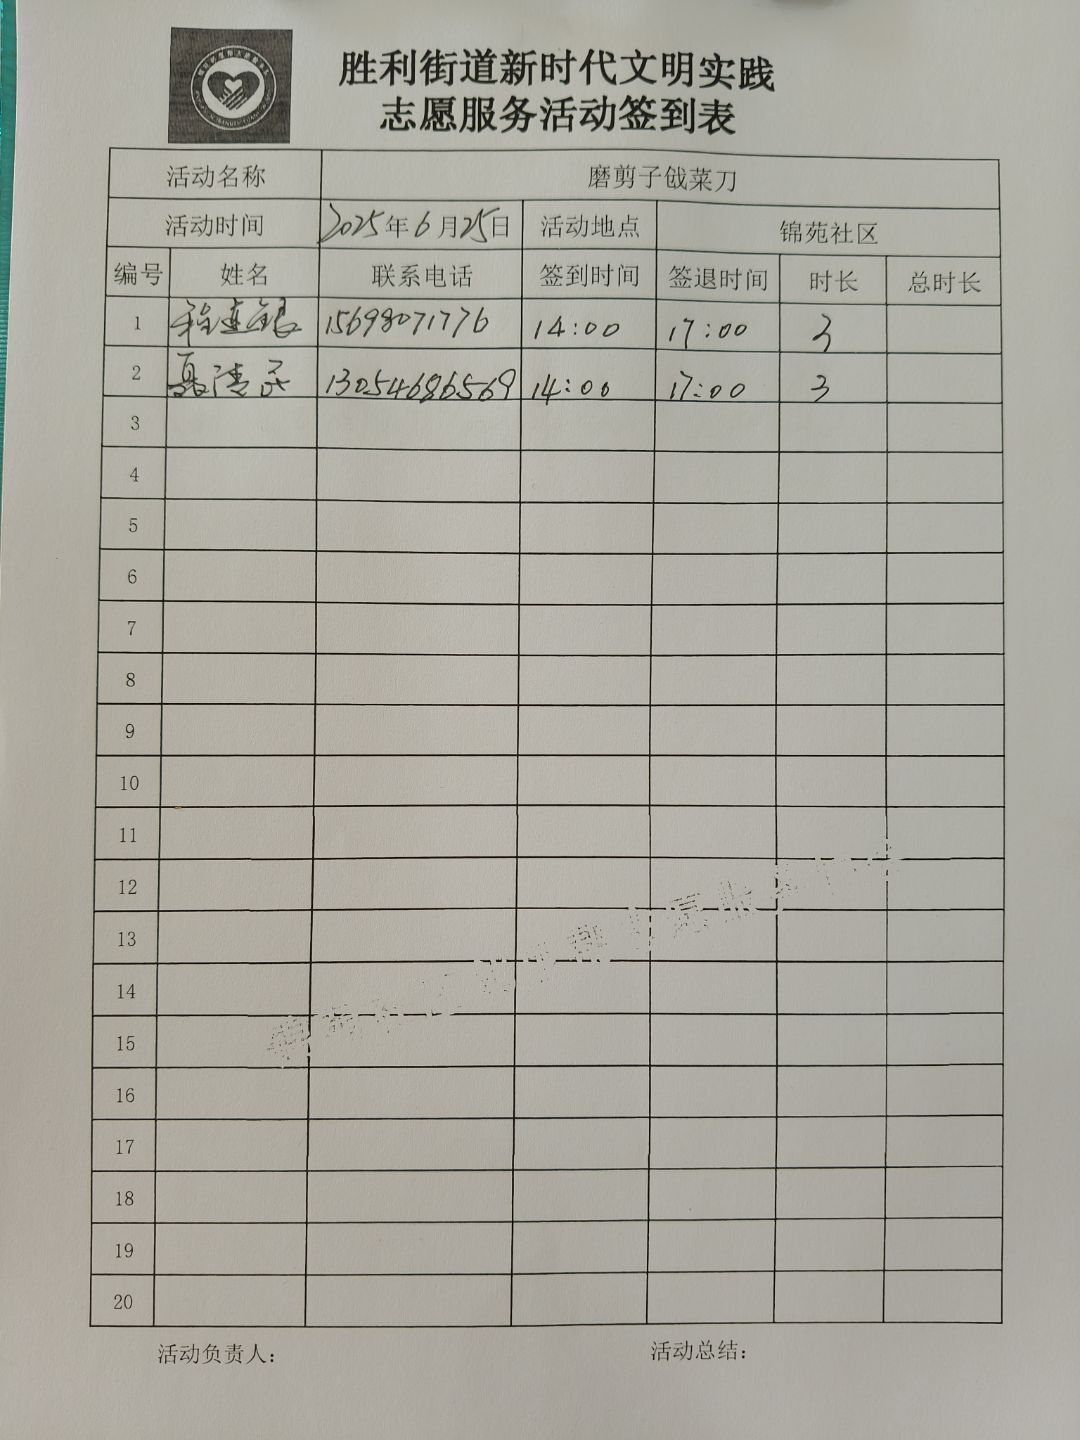 胜利街道新时代文明实践
志愿服务活动签到表
活动名称 磨剪子戗菜刀
活动时间 2025年6月25日 活动地点 锦苑社区
编号 姓名 联系电话 签到时间 签退时间 时长 总时长
1 程连银 15698071776 14:00 17:00 3
2 聂清民 13054686569 14:00 17:00 3
3
4
5
6
7
8
9
10
11
12
13
14
15
16
17
18
19
20
活动负责人: 活动总结: